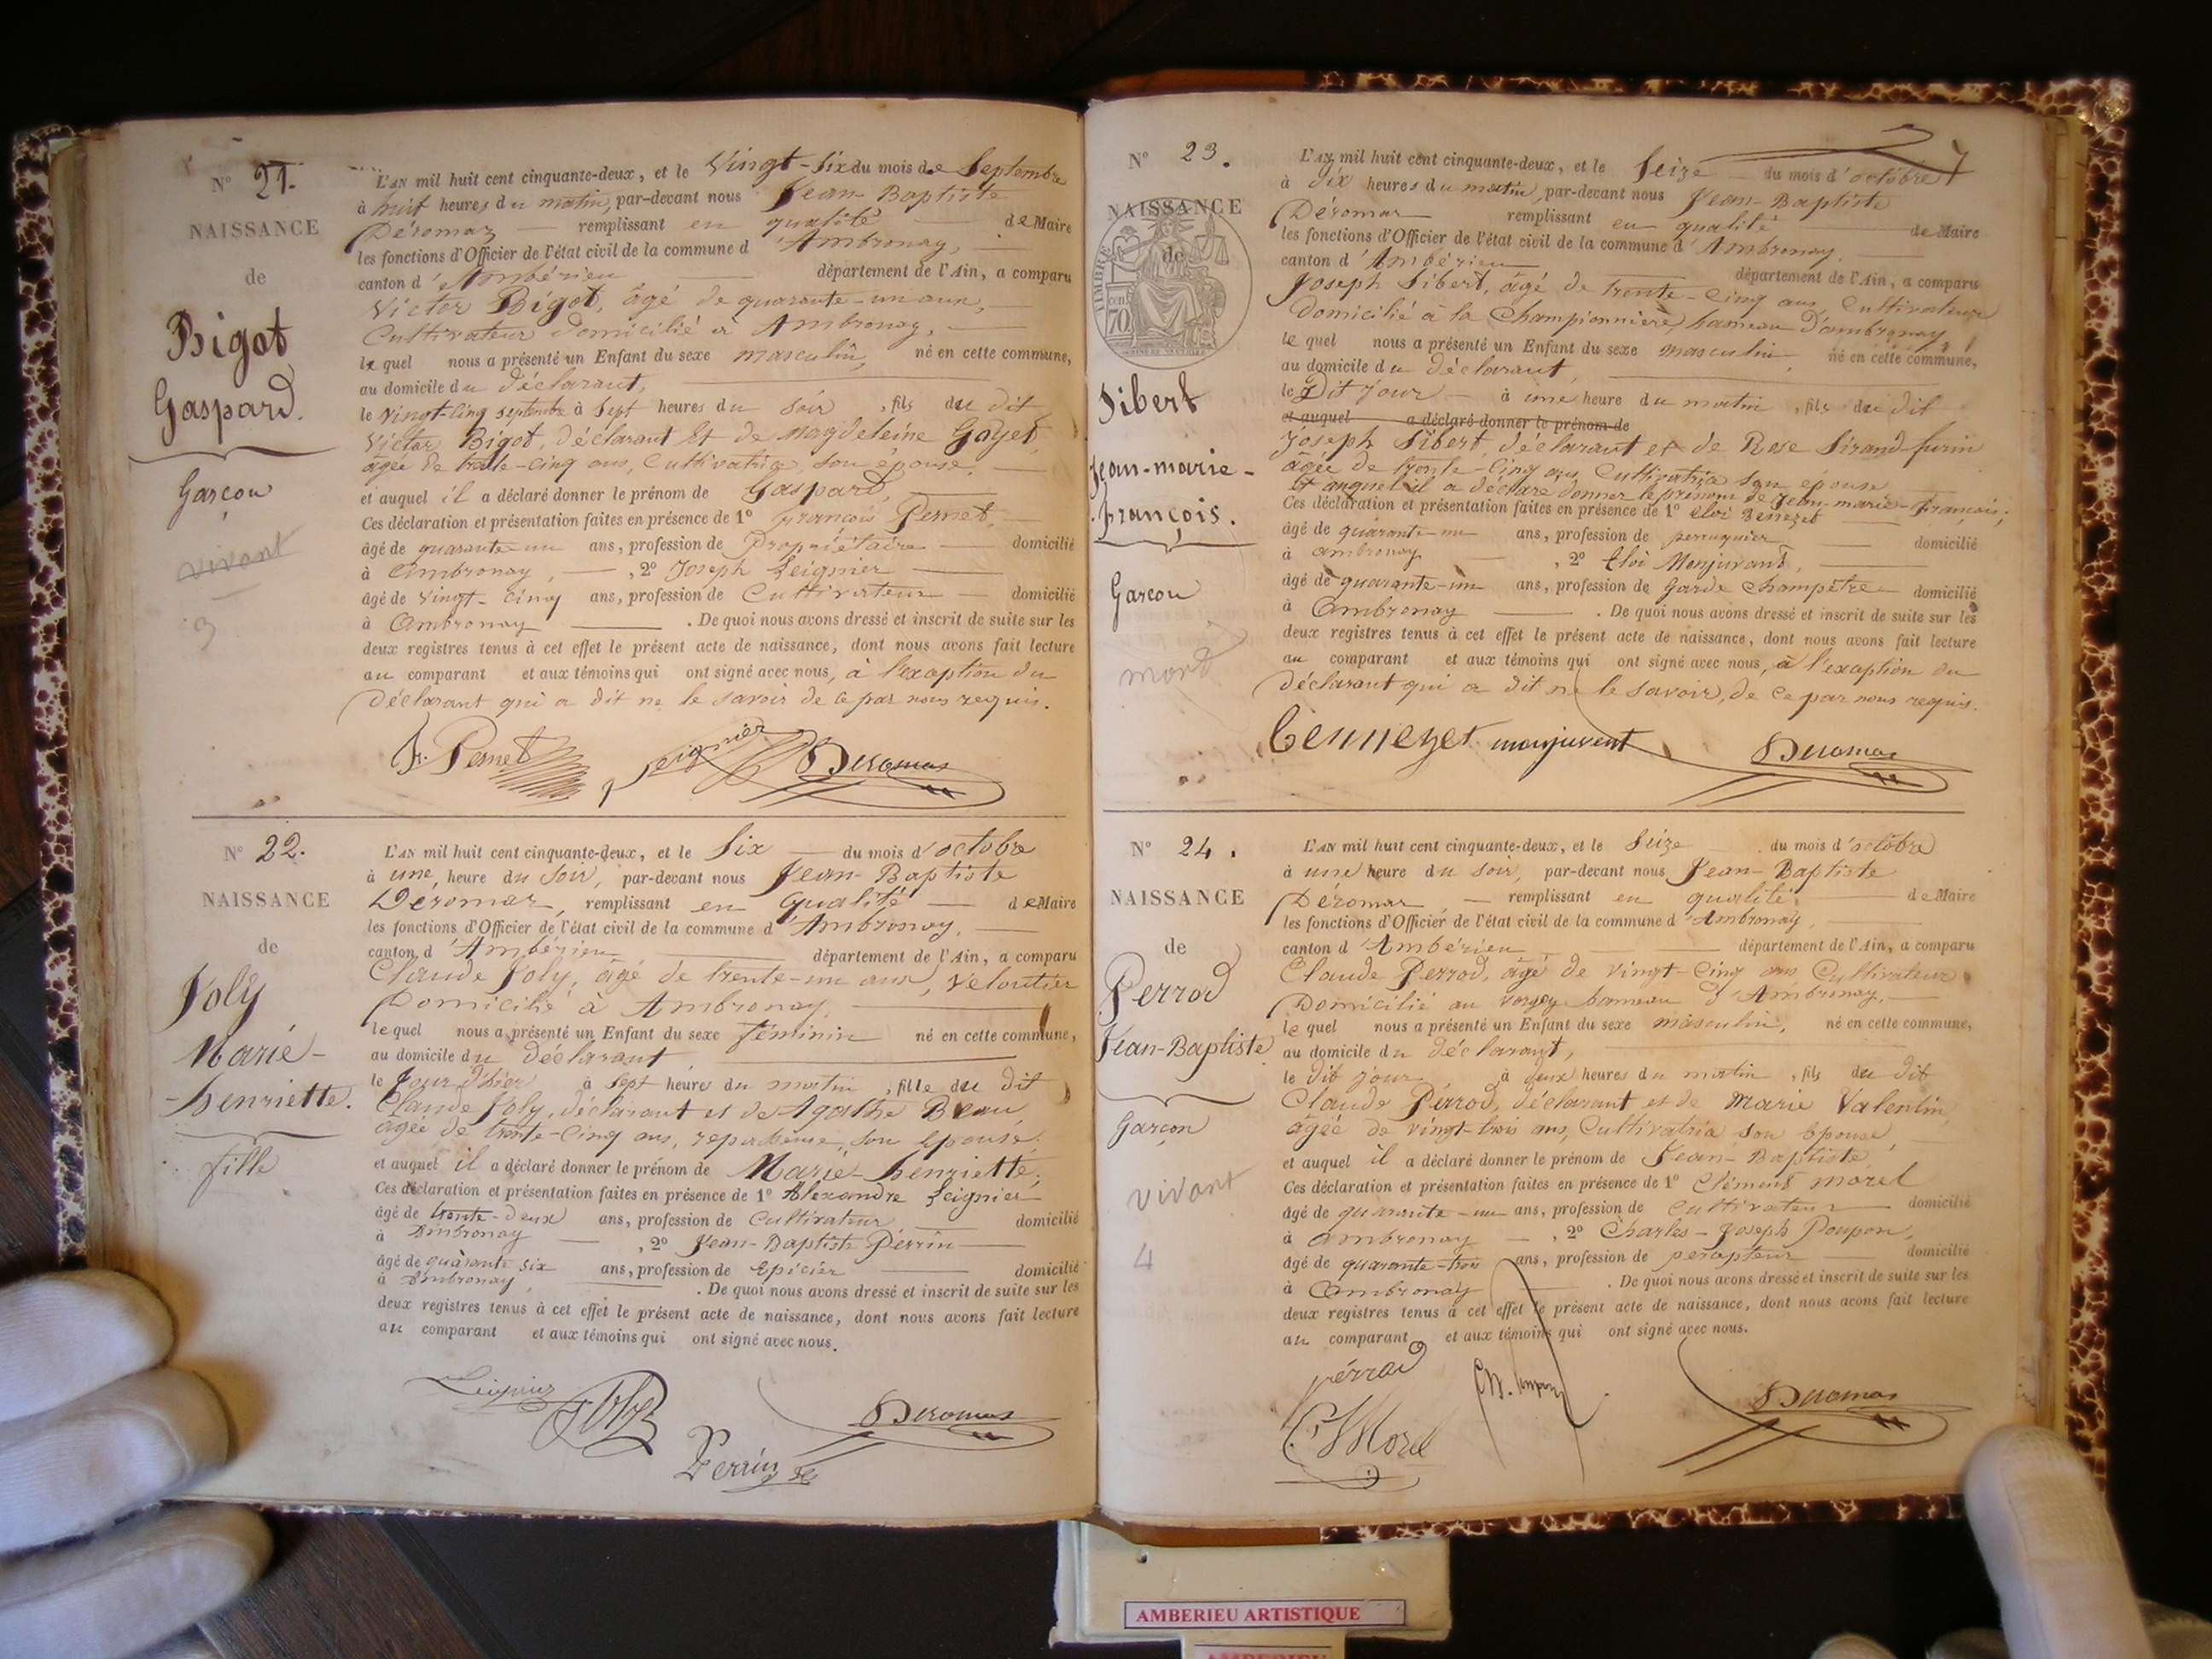 N° 21.
NAISSANCE
de
Bigot
Gaspard.
Garçon
vivant
3
L'AN mil huit cent cinquante-deux, et le Vingt-six du mois de Septembre
à huit heures du matin, par-devant nous Jean-Baptiste
Déromas remplissant en qualité de Maire
les fonctions d'Officier de l'état civil de la commune d'Ambronay,
canton d'Ambérieu département de l'Ain, a comparu
Victor Bigot, âgé de quarante-un ans,
Cultivateur domicilié à Ambronay,
lequel nous a présenté un Enfant du sexe masculin, né en cette commune,
au domicile du déclarant,
le vingt-cinq septembre à Sept heures du soir, fils du dit
Victor Bigot, déclarant et de Magdeleine Gayet,
âgée de trente-cinq ans, Cultivatrice, son épouse,
et auquel il a déclaré donner le prénom de Gaspard,
Ces déclaration et présentation faites en présence de 1° François Pernet,
âgé de quarante-un ans, profession de Propriétaire domicilié
à Ambronay, 2° Joseph Leignier
âgé de Vingt-cinq ans, profession de Cultivateur domicilié
à Ambronay. De quoi nous avons dressé et inscrit de suite sur les
deux registres tenus à cet effet le présent acte de naissance, dont nous avons fait lecture
au comparant et aux témoins qui ont signé avec nous, à l'exception du
Déclarant qui a dit ne le savoir de ce par nous requis.
Fr. Pernet Leignier Deromas
N° 22.
NAISSANCE
de
Joly
Marie-
henriette.
fille
L'AN mil huit cent cinquante-deux, et le Six du mois d'octobre
à une heure du Soir, par-devant nous Jean-Baptiste
Déromas, remplissant en qualité de Maire
les fonctions d'Officier de l'état civil de la commune d'Ambronay,
canton d'Ambérieu département de l'Ain, a comparu
Claude Joly, âgé de trente-un ans, Veloutier
Domicilié à Ambronay,
lequel nous a présenté un Enfant du sexe féminin né en cette commune,
au domicile du déclarant,
le Jour d'hier à Sept heures du matin, fille du dit
Claude Joly, déclarant et de Agathe Beau
âgée de trente-cinq ans, repasseuse, son épouse.
et auquel il a déclaré donner le prénom de Marie-henriette;
Ces déclaration et présentation faites en présence de 1° Alexandre Leignier
âgé de trente-deux ans, profession de Cultivateur domicilié
à Ambronay, 2° Jean-Baptiste Perrin
âgé de quarante six ans, profession de Epicier domicilié
à Ambronay. De quoi nous avons dressé et inscrit de suite sur les
deux registres tenus à cet effet le présent acte de naissance, dont nous avons fait lecture
au comparant et aux témoins qui ont signé avec nous.
Leignier Joly Deromas
Perrin
N° 23.
NAISSANCE
de
TIMBRE
70
Sibert
Jean-marie-
françois.
Garçon
mort
7
L'AN mil huit cent cinquante-deux, et le Seize du mois d'octobre
à dix heures du matin, par-devant nous Jean-Baptiste
Déromas remplissant en qualité de Maire
les fonctions d'Officier de l'état civil de la commune d'Ambronay.
canton d'Ambérieu département de l'Ain, a comparu
Joseph Sibert, âgé de trente-cinq ans, Cultivateur
domicilié à la Championnière, hameau d'ambronay,
lequel nous a présenté un Enfant du sexe masculin né en cette commune,
au domicile du déclarant,
le Dit jour à une heure du matin, fils du dit
et auquel a déclaré donner le prénom de
Joseph Sibert, déclarant et de Rose Sirand-furin
âgée de trente-cinq ans, Cultivatrice son épouse
Et auquel il a déclaré donner le prénom de Jean-marie-françois;
Ces déclaration et présentation faites en présence de 1° Eloi Bennezet
âgé de quarante-un ans, profession de perruquier domicilié
à ambronay, 2° Eloi Monjuvent,
âgé de quarante-un ans, profession de Garde Champêtre domicilié
à Ambronay. De quoi nous avons dressé et inscrit de suite sur les
deux registres tenus à cet effet le présent acte de naissance, dont nous avons fait lecture
au comparant et aux témoins qui ont signé avec nous, à l'exception du
Déclarant qui a dit ne le savoir, de ce par nous requis.
Bennezet monjuvent Deromas
N° 24.
NAISSANCE
de
Perrod
Jean-Baptiste
Garçon
vivant
4
L'AN mil huit cent cinquante-deux, et le Seize du mois d'octobre
à une heure du soir, par-devant nous Jean-Baptiste
Déromas, remplissant en qualité de Maire
les fonctions d'Officier de l'état civil de la commune d'Ambronay,
canton d'Ambérieu département de l'Ain, a comparu
Claude Perrod, âgé de vingt-cinq ans Cultivateur
Domicilié au hameau d'Ambronay,
lequel nous a présenté un Enfant du sexe masculin, né en cette commune,
au domicile du déclarant,
le dit jour à deux heures du matin, fils du dit
Claude Perrod, déclarant et de Marie Valentin
âgée de vingt-trois ans, Cultivatrice son épouse,
et auquel il a déclaré donner le prénom de Jean-Baptiste,
Ces déclaration et présentation faites en présence de 1° Clément morel
âgé de quarante-un ans, profession de Cultivateur domicilié
à ambronay, 2° Charles-Joseph Poupon,
âgé de quarante-trois ans, profession de percepteur domicilié
à Ambronay. De quoi nous avons dressé et inscrit de suite sur les
deux registres tenus à cet effet le présent acte de naissance, dont nous avons fait lecture
au comparant et aux témoins qui ont signé avec nous.
perrod Deromas
Ct Morel
AMBERIEU ARTISTIQUE